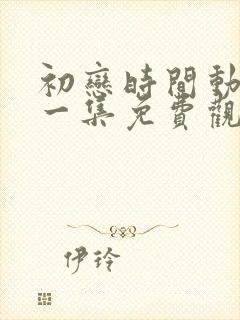 初戀時間動
一集免費觀
伊玲